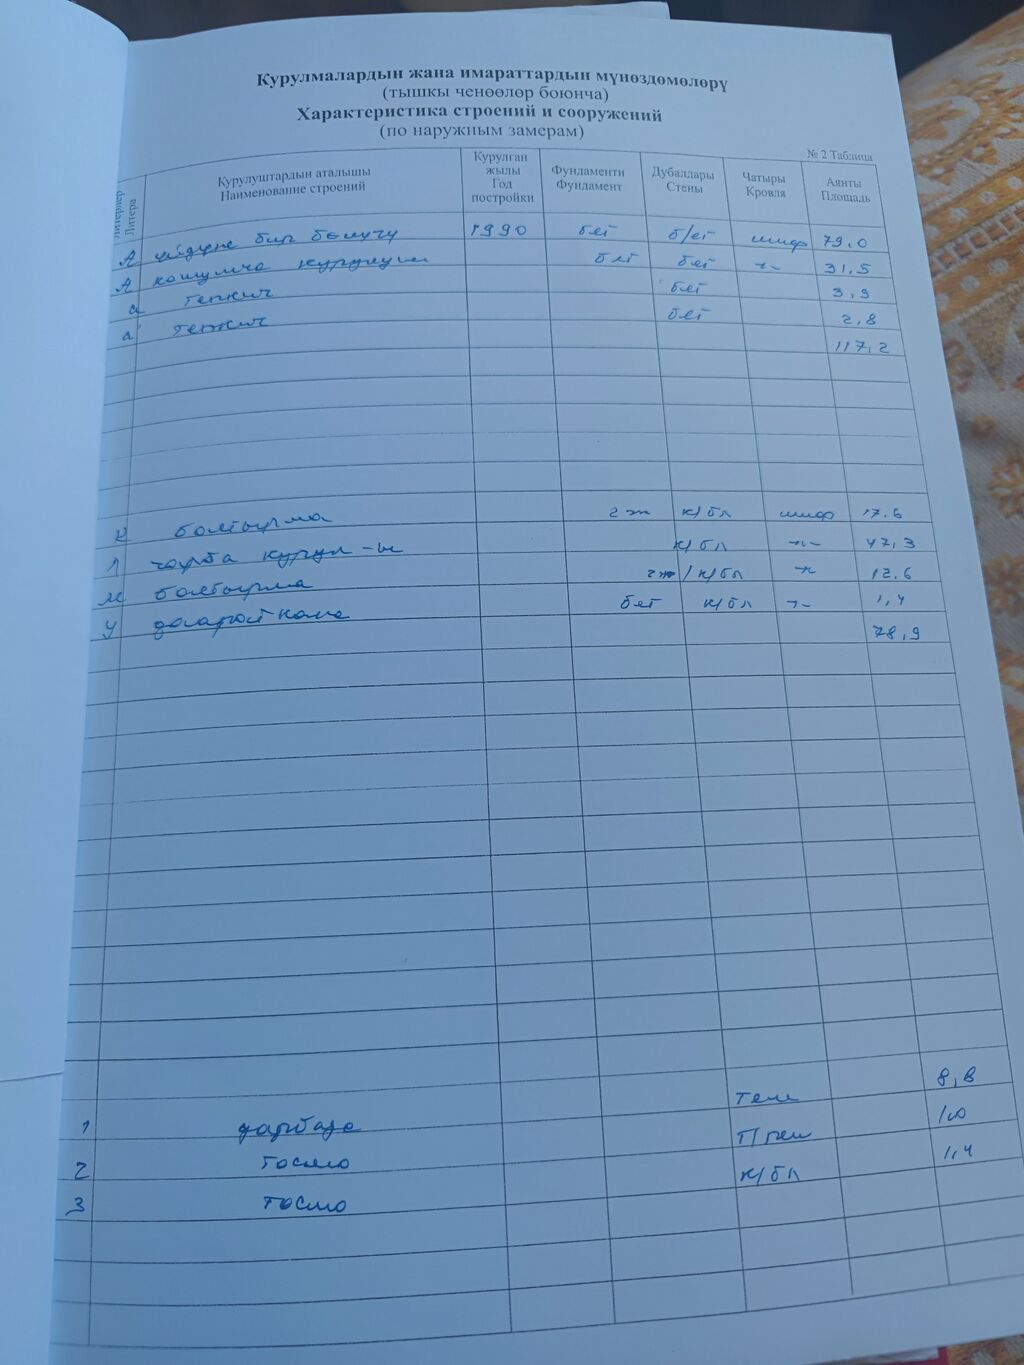 Курулмалардын жана имараттардын мүнөздөмөлөрү
(тышкы ченөөлөр боюнча)
Характеристика строений и сооружений
(по наружным замерам)
№ 2 Таблица
Литерлер Литера
Курулуштардын аталышы Наименование строений
Курулган жылы Год постройки
Фундаменти Фундамент
Дубалдары Стены
Чатыры Кровля
Аянты Площадь
А үйдүн бир бөлүгү 1990 бет б/ет шиф 79,0
А кошумча курулуш бет бет -"- 31.5
а тепкич бет 3,9
а' тепкич бет 2,8
117,2
К болтурма гж к/бл шиф 17.6
Л чарба курул-ш к/бл -"- 47,3
М болтурма гж/к/бл -"- 12.6
У даараткана бет к/бл -"- 1,4
78,9
1 дарбаза теш 8,8
2 тосмо т/реш 1,0
3 тосмо к/бл 1,4